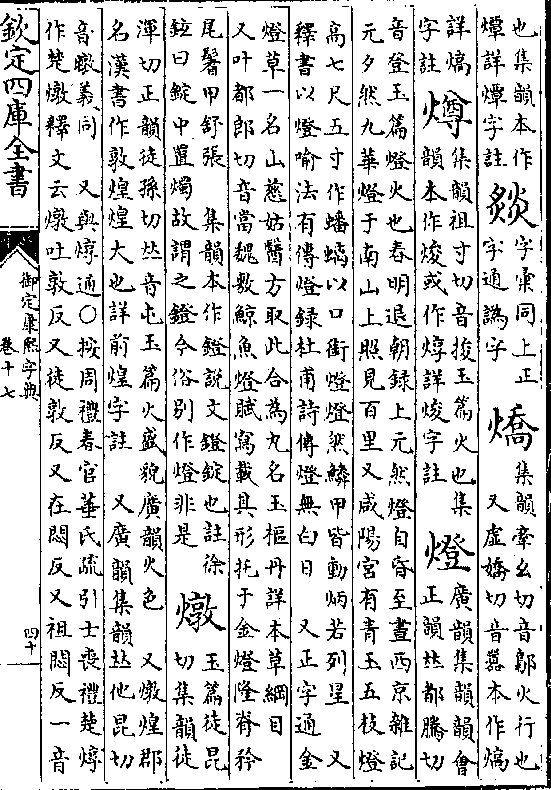 也集韻本作
燂詳燂字註
字彙同上正
字通譌字
燆
集韻牽幺切音鄡火行也
又虛嬌切音囂本作熇
詳熇
字註
燇
集韻祖寸切音捘玉篇火也集
韻本作焌或作焞詳焌字註
燈
廣韻集韻韻會
正韻𠀤都騰切
音登玉篇燈火也春明退朝録上元然燈自昏至晝西京雜記
元夕然九華燈于南山上照見百里又咸陽宫有青玉五枝燈
高七尺五寸作蟠螭以口銜燈燈然鱗甲皆動炳若列星 又
釋書以燈喻法有傳燈録杜甫詩傳燈無白日 又正字通金
燈草一名山慈姑醫方取此合為丸名玉樞丹詳本草綱目
又叶都郎切音當魏數鯨魚燈賦寫載其形托于金燈隆脊矜
尾鬐甲舒張 集韻本作鐙說文鐙錠也註徐
鉉曰錠中置燭故謂之鐙今俗别作燈非是
燉
玉篇徒昆
切集韻徒
渾切正韻徒孫切𠀤音屯玉篇火盛貌廣韻火色 又燉煌郡
名漢書作敦煌煌大也詳前煌字註 又廣韻集韻𠀤他昆切
音暾義同 又與焞通○按周禮春官菙氏疏引士喪禮楚焞
作楚燉釋文云燉吐敦反又徒敦反又在悶反又祖悶反一音
欽定四庫全書
御定康熙字典
卷十七
四十